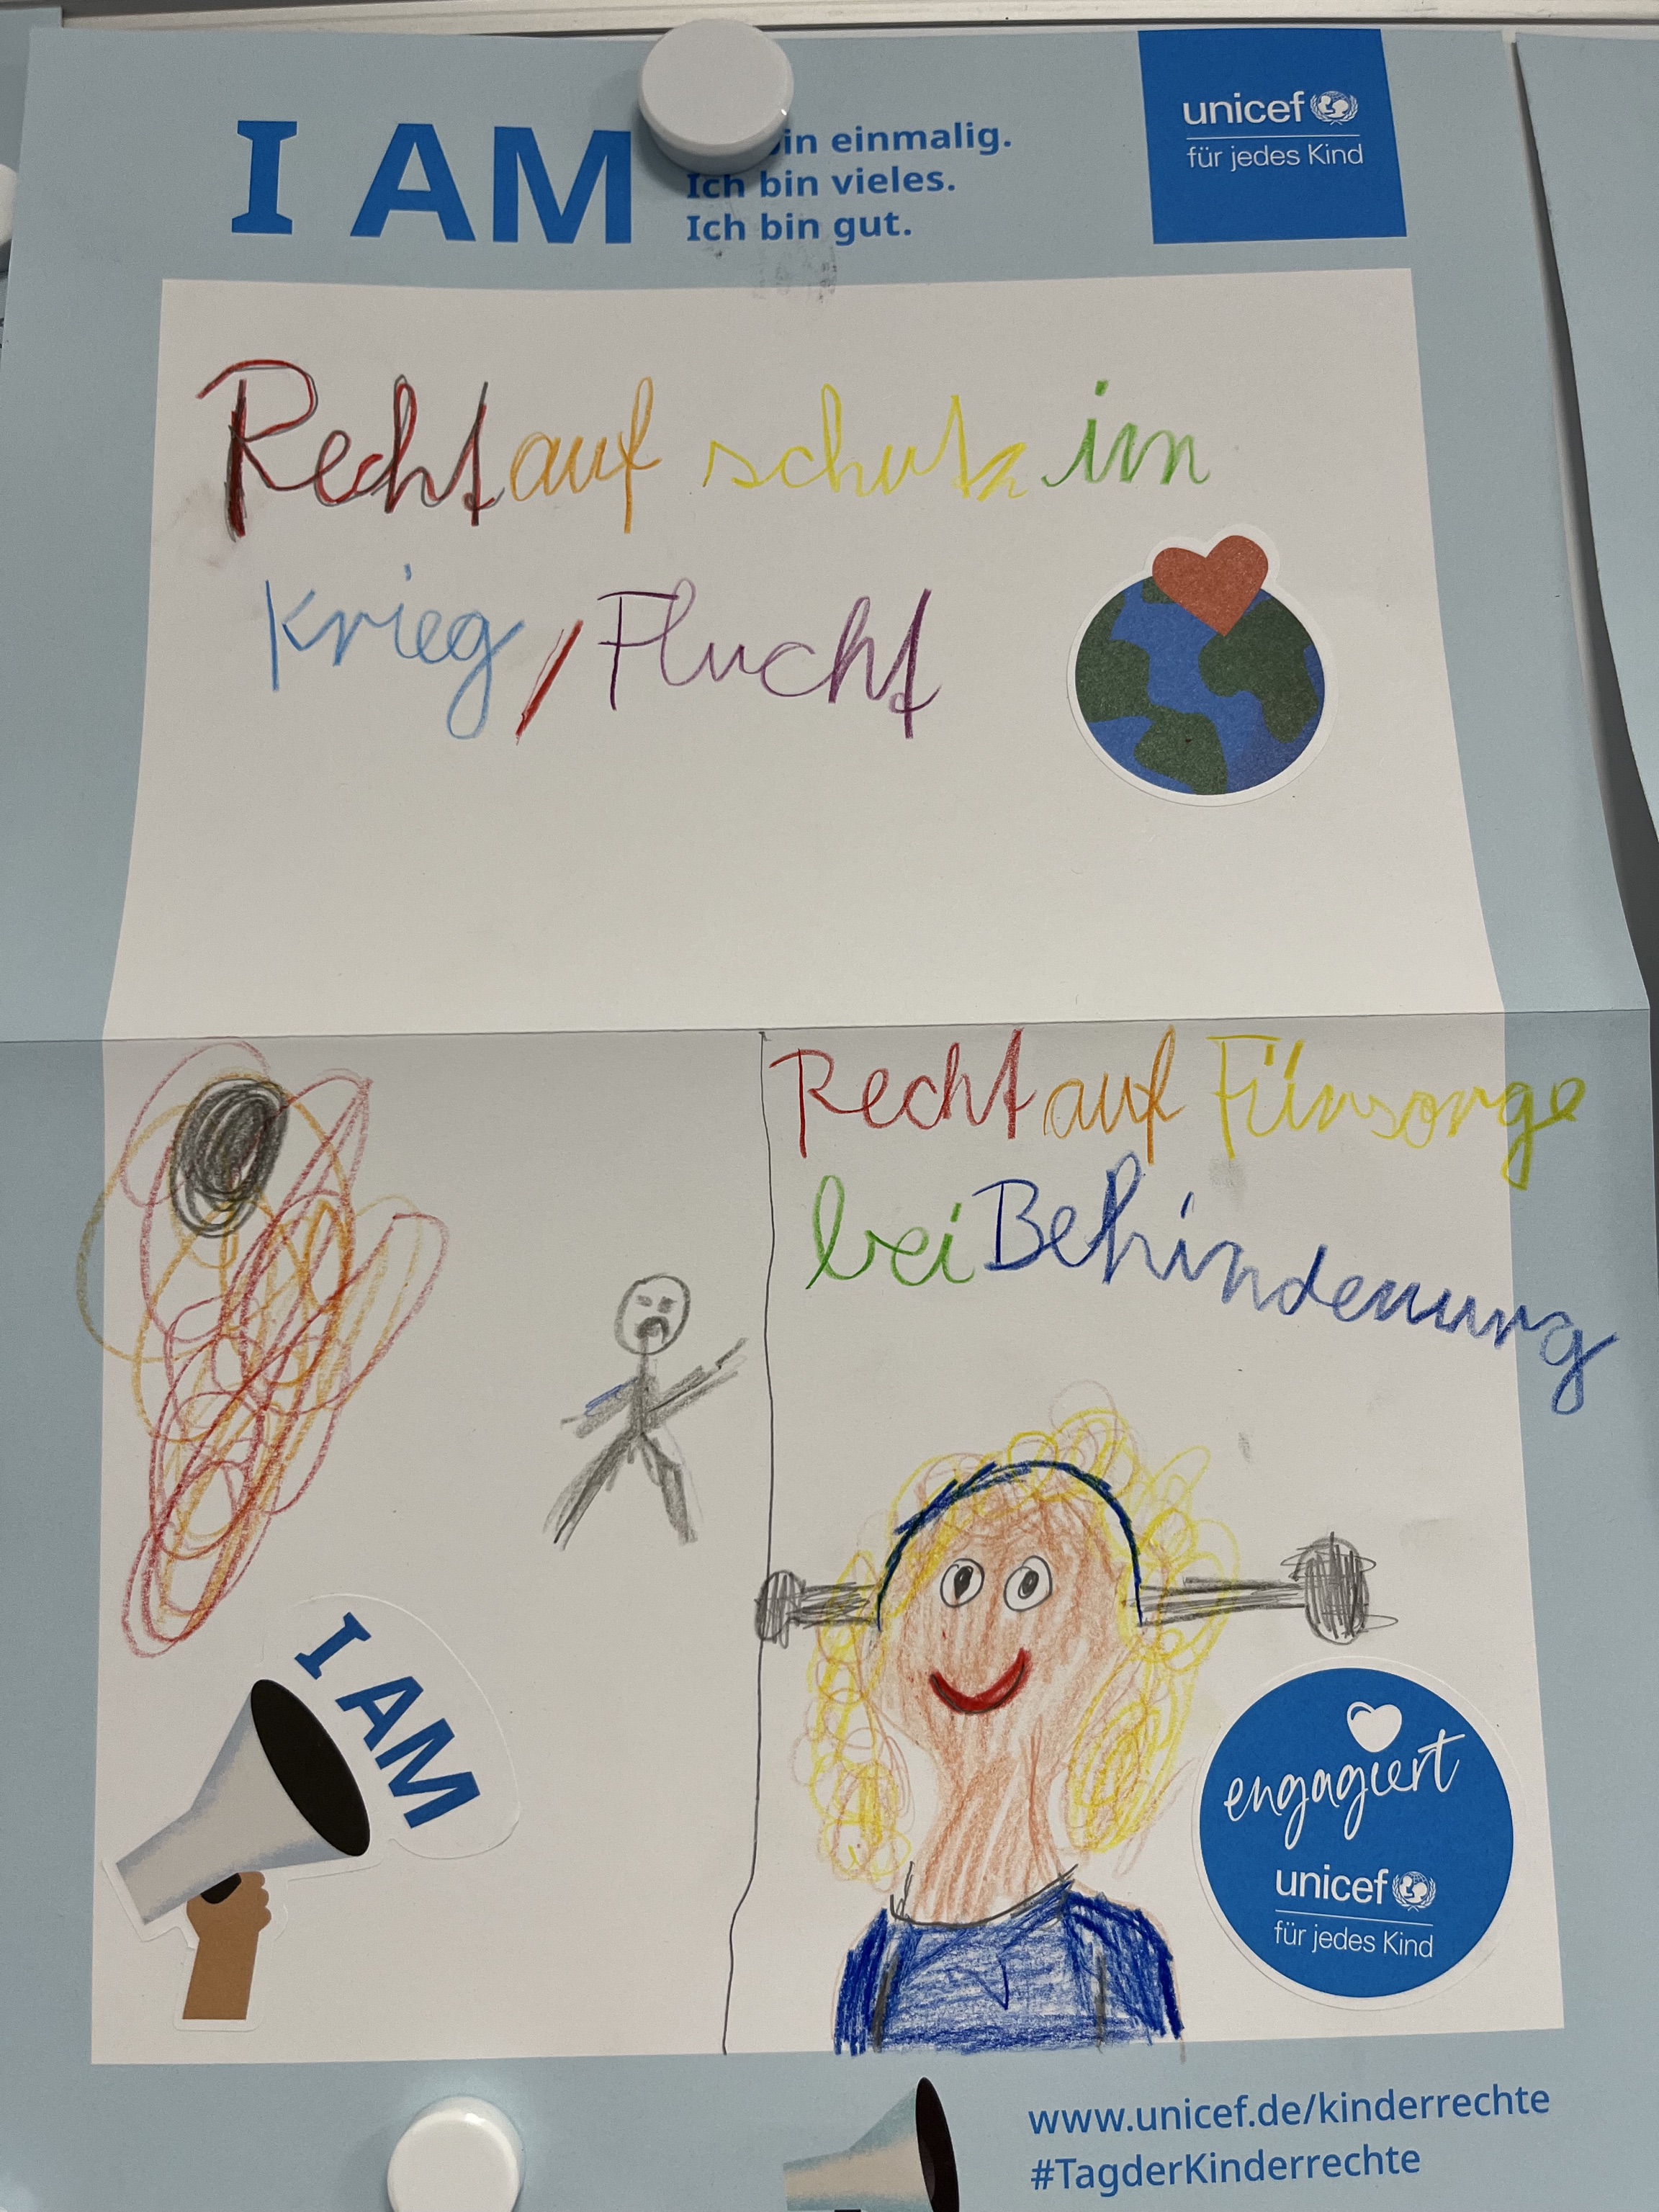 I AM
in einmalig.
Ich bin vieles.
Ich bin gut.
unicef
für jedes Kind
Recht auf schutz im
Krieg/Flucht
Recht auf Fürsorge
bei Behinderung
I AM
engagiert
unicef
für jedes Kind
www.unicef.de/kinderrechte
#TagderKinderrechte